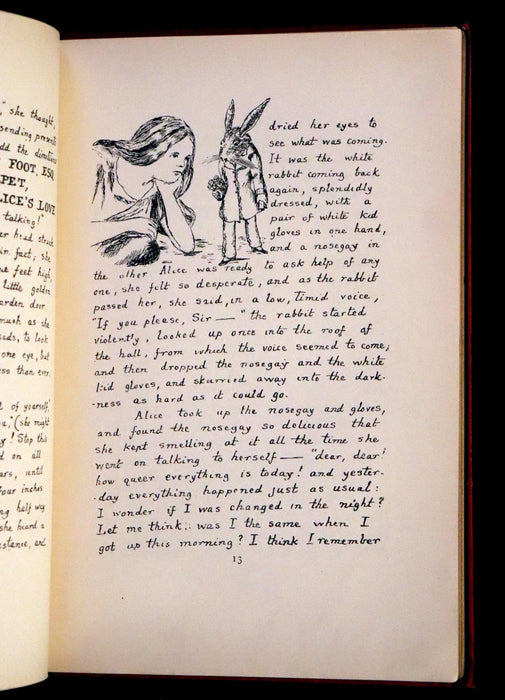 " she thought,
sending presents
dd the directions
FOOT, ESQ.
PET,
LICE'S LOVE
talking!"
er head struck
in fact, she
feet high,
little golden
arden door
much as she
to look
one eye, but
ess than ever.
of yourself,
(she might
! Stop this
on all
until
four inches
half way
she heard a
distance, and
dried her eyes to
see what was coming.
It was the white
rabbit coming back
again, splendidly
dressed, with a
pair of white kid
gloves in one hand,
and a nosegay in
the other. Alice was ready to ask help of any
one, she felt so desperate, and as the rabbit
passed her, she said, in a low, timid voice,
"If you please, Sir—" the rabbit started
violently, looked up once into the roof of
the hall, from which the voice seemed to come,
and then dropped the nosegay and the white
kid gloves, and skurried away into the dark-
-ness as hard as it could go.
Alice took up the nosegay and gloves,
and found the nosegay so delicious that
she kept smelling at it all the time she
went on talking to herself— "dear, dear!
how queer everything is today! and yester-
-day everything happened just as usual:
I wonder if I was changed in the night?
Let me think: was I the same when I
got up this morning? I think I remember
13